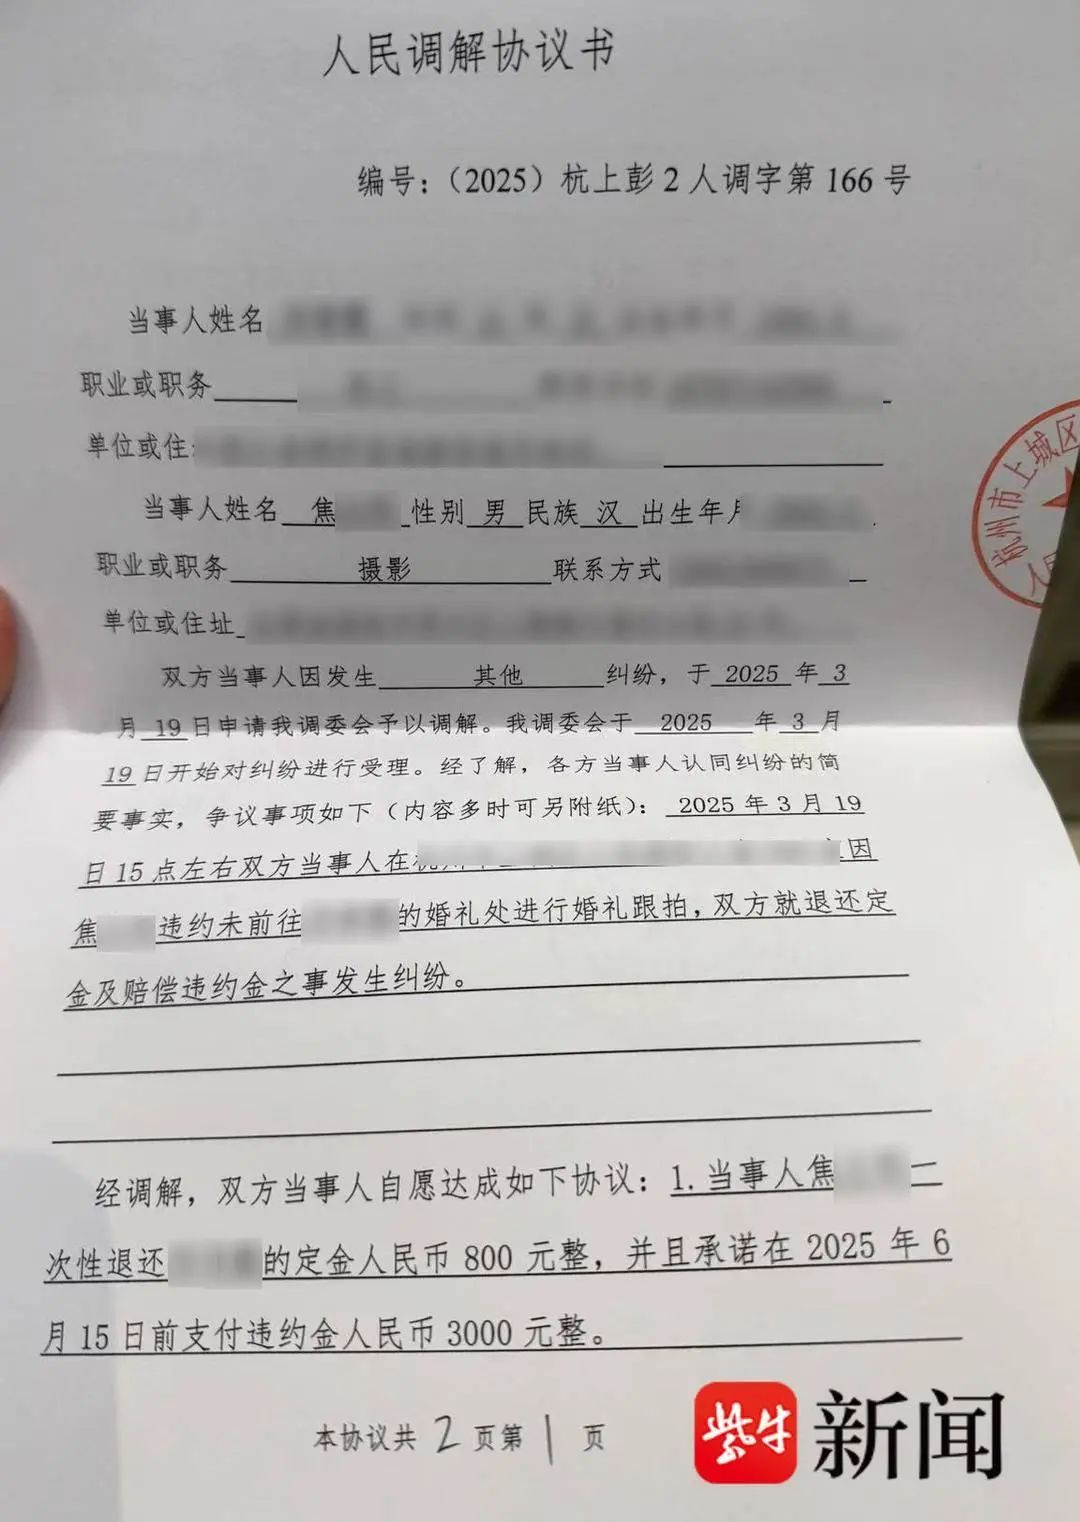 人民调解协议书
编号：（2025）杭上彭2人调字第166号
当事人姓名
职业或职务
单位或住
当事人姓名 焦 性别 男 民族 汉 出生年月
职业或职务 摄影 联系方式
单位或住址
双方当事人因发生 其他 纠纷，于 2025 年 3
月 19 日申请我调委会予以调解。我调委会于 2025 年 3 月
19 日开始对纠纷进行受理。经了解，各方当事人认同纠纷的简
要事实，争议事项如下（内容多时可另附纸）： 2025 年 3 月 19
日 15 点左右双方当事人在 因
焦 违约未前往 的婚礼处进行婚礼跟拍，双方就退还定
金及赔偿违约金之事发生纠纷。
经调解，双方当事人自愿达成如下协议：1. 当事人焦
次性退还 的定金人民币 800 元整，并且承诺在 2025 年 6
月 15 日前支付违约金人民币 3000 元整。
本协议共 2 页第 1 页
杭州市上城区
紫牛 新闻